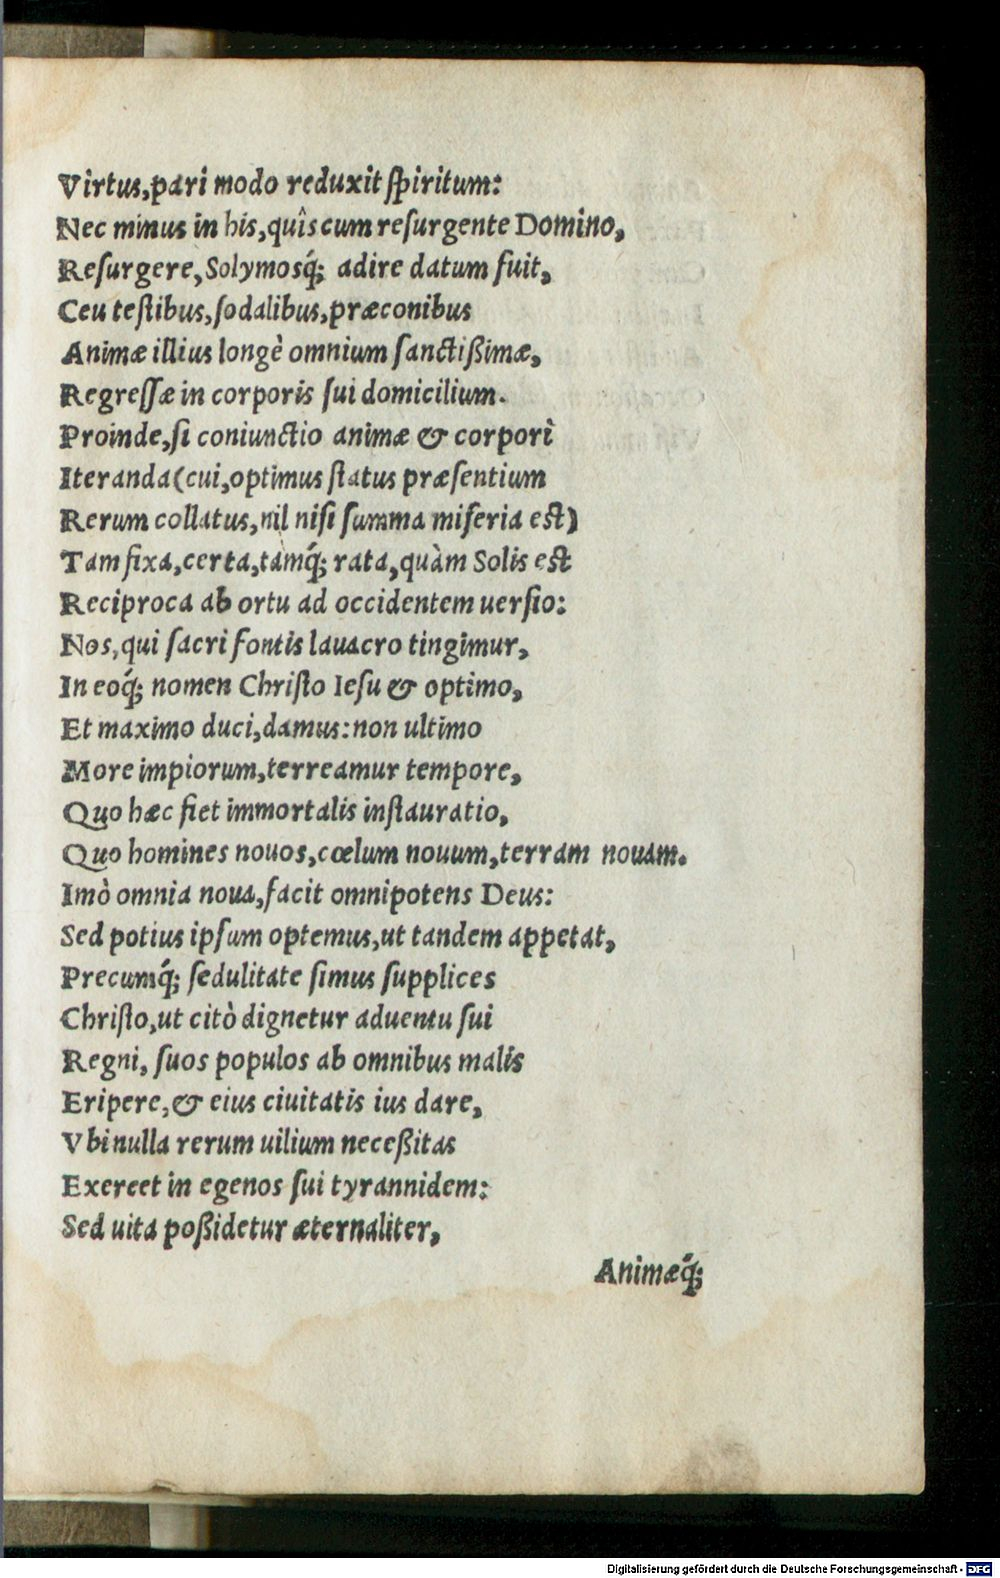 Virtus,pari modo reduxit ſpiritum:
Nec minus in his,quîs cum reſurgente Domino,
Reſurgere,Solymosq́; adire datum fuit,
Ceu teſtibus,ſodalibus,præconibus
Animæ illius longè omnium ſanctißimæ,
Regreſſæ in corporis ſui domicilium.
Proinde,ſi coniunctio animæ & corpori
Iteranda(cui,optimus ſtatus præſentium
Rerum collatus,nil niſi ſumma miſeria eſt)
Tam fixa,certa,tamq́; rata,quàm Solis eſt
Reciproca ab ortu ad occidentem uerſio:
Nos,qui ſacri fontis lauacro tingimur,
In eoq́; nomen Chriſto Ieſu & optimo,
Et maximo duci,damus:non ultimo
More impiorum,terreamur tempore,
Quo hæc fiet immortalis inſtauratio,
Quo homines nouos,cœlum nouum,terram nouam.
Imò omnia noua,facit omnipotens Deus:
Sed potius ipſum optemus,ut tandem appetat,
Precumq́; ſedulitate ſimus ſupplices
Chriſto,ut citò dignetur aduentu ſui
Regni, ſuos populos ab omnibus malis
Eripere,& eius ciuitatis ius dare,
Vbi nulla rerum uilium neceßitas
Exercet in egenos ſui tyrannidem:
Sed uita poßidetur æternaliter,
Animæq́;
Digitalisierung gefördert durch die Deutsche Forschungsgemeinschaft - DFG